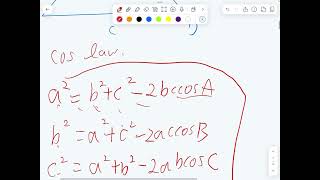 cos law.
a² = b² + c² - 2bccosA
b² = a² + c² - 2accosB
c² = a² + b² - 2abcosC